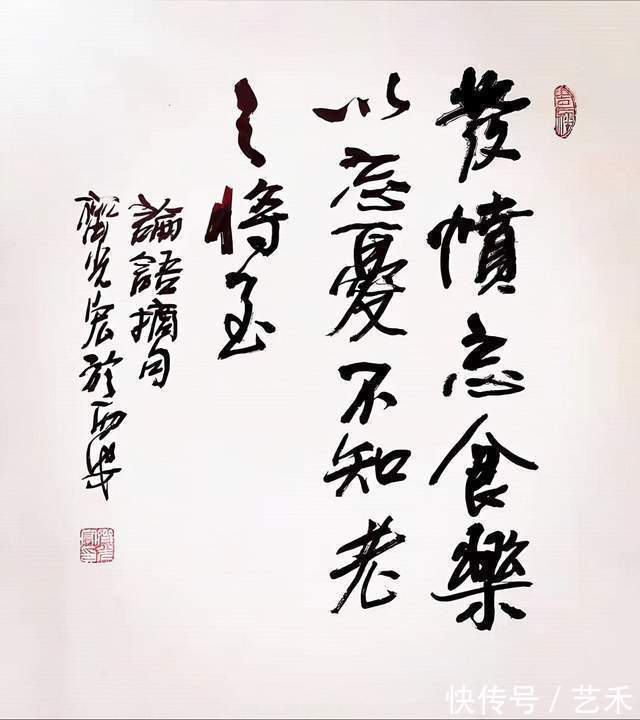 發憤忘食樂
以忘憂不知老
之將至
論語摘句
光宏於西安
快传号 / 艺禾